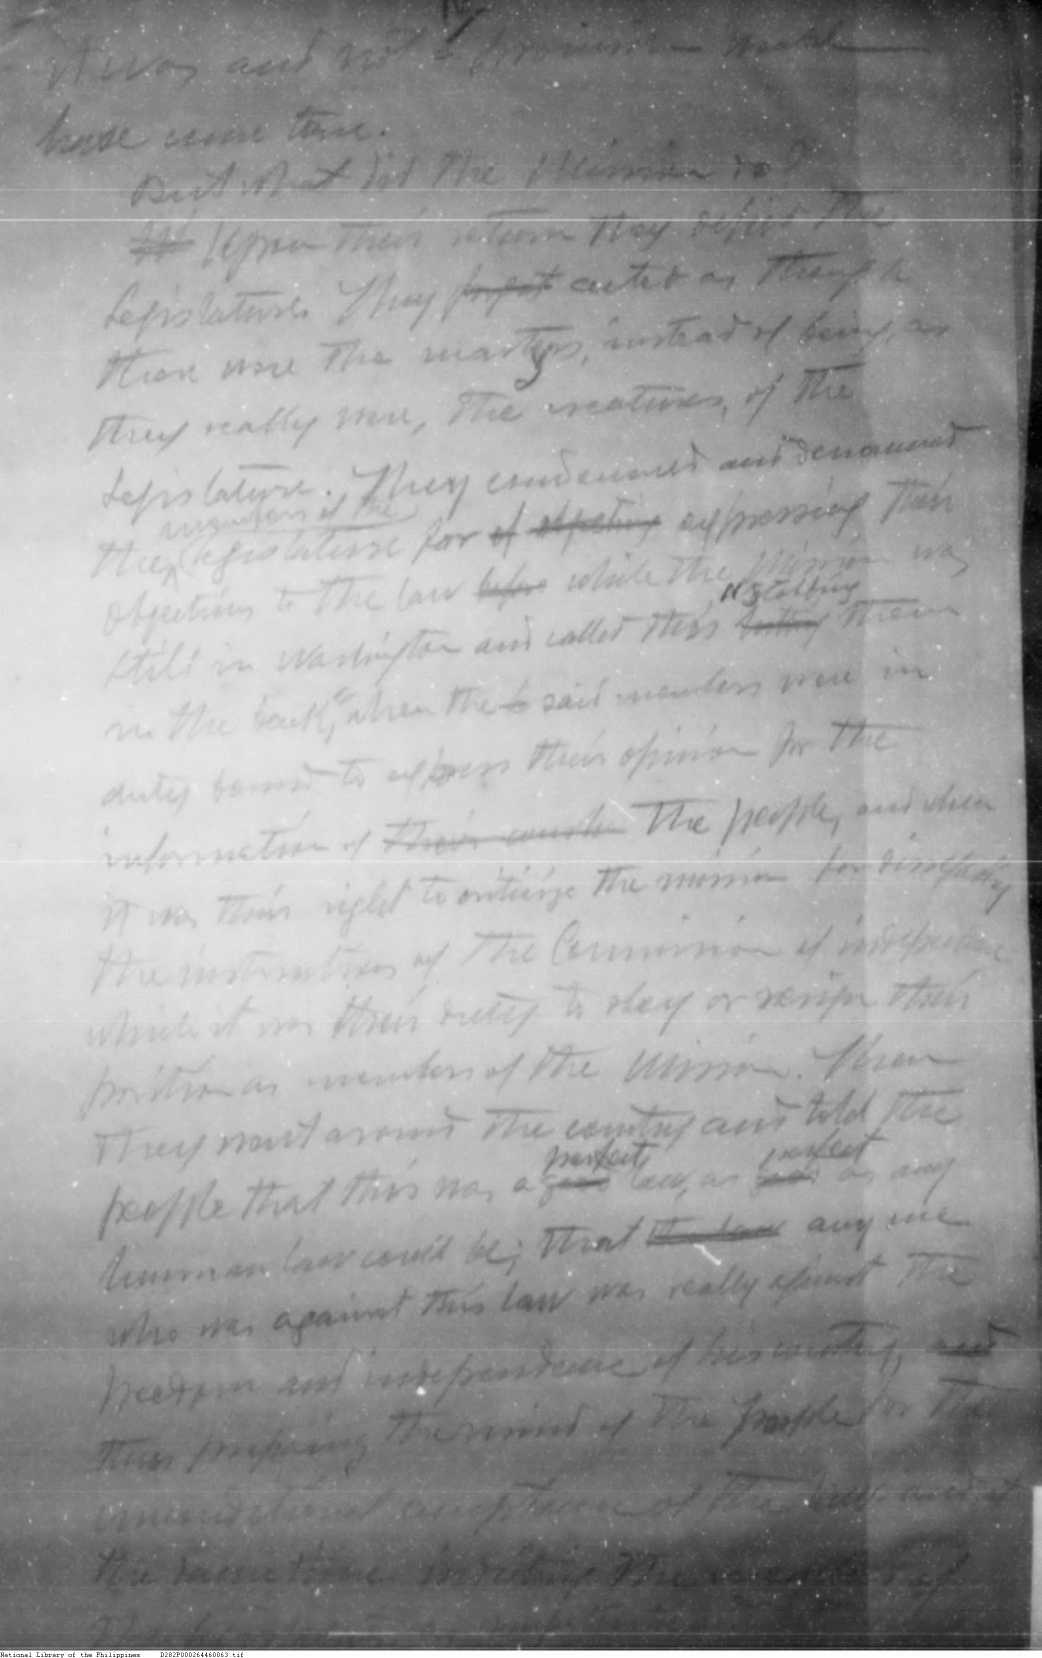 it was and not a provision would
have come true.
But what did the Mission do?
Upon their return they defied the
Legislature. They acted as though
these were the martyrs, instead of being, as
they really were, the creatures, of the
Legislature. They condemned and denounced
members of the
the Legislature for of objecting expressing their
objections to the law before while the Mission was
stabbing
still in Washington and called this hitting them
in the back", when the said members were in
duty bound to express their opinion for the
information of their the people, and when
it was their right to criticize the mission for disobeying
the instructions of the Commission of independence
which it was their duty to obey or resign their
position as members of the Mission. Then
they went around the country and told the
perfect perfect
people that this was a good law, as good as any
human law could be; that the law any one
who was against this law was really against the
freedom and independence of his country, and
thus preparing the mind of the people for the
unconditional acceptance of the law and at
the same time the members of
National Library of the Philippines D282P000264460063.tif